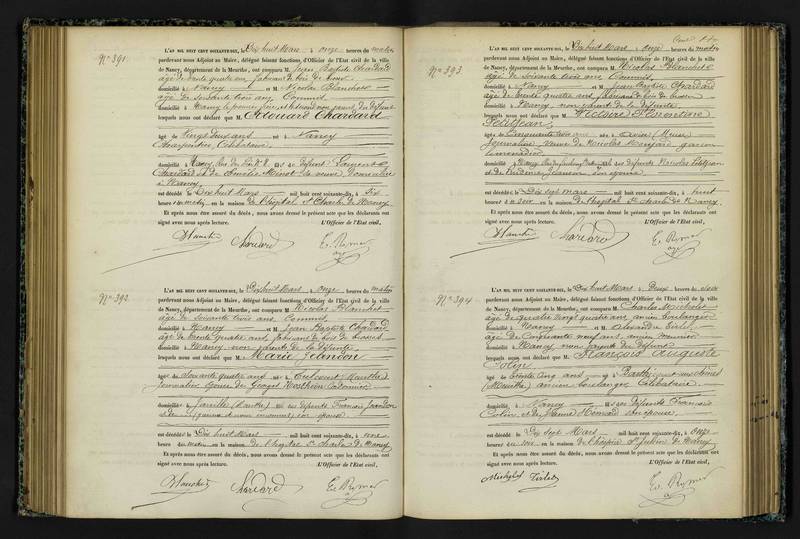 N° 391
L'AN MIL HUIT CENT SOIXANTE-DIX, le Dix huit Mars à onze heures du matin
pardevant nous Adjoint au Maire, délégué faisant fonctions d'Officier de l'Etat civil de la ville
de Nancy, département de la Meurthe, ont comparu M. Jean Baptiste Chardard
âgé de trente quatre ans, fabricant de bois de
domicilié à Nancy et M. Nicolas Blanchet
âgé de soixante trois ans, Commis,
domicilié à Nancy, le premier frère et le second non parent du défunt
lesquels nous ont déclaré que M. Edouard Chardard
âgé de Vingt deux ans né à Nancy
Charpentier, Célibataire
domicilié à Nancy, Rue fils de défunt Laurent
Chardard et de Minot sa veuve, domiciliée
à Nancy
est décédé le Dix huit Mars mil huit cent soixante-dix, à Dix
heures du matin, en la maison de l'hôpital St Charles de Nancy
Et après nous être assuré du décès, nous avons dressé le présent acte que les déclarants ont
signé avec nous après lecture. L'Officier de l'Etat civil,
Blanchet Chardard E. Rymer
N° 392
L'AN MIL HUIT CENT SOIXANTE-DIX, le Dix huit Mars à onze heures du matin
pardevant nous Adjoint au Maire, délégué faisant fonctions d'Officier de l'Etat civil de la ville
de Nancy, département de la Meurthe, ont comparu M. Nicolas Blanchet
âgé de soixante trois ans, Commis,
domicilié à Nancy et M. Jean Baptiste Chardard
âgé de trente quatre ans, fabricant de bois de brosses
domicilié à Nancy, non parents de la défunte
lesquels nous ont déclaré que M. Marie
âgée de soixante quatre ans née à (Meurthe)
Journalière, épouse de Georges Cordonnier
domiciliée à Jarville (Meurthe) fille des défunts François
et de (
est décédée le Dix huit Mars mil huit cent soixante-dix, à une
heure du matin, en la maison de l'hôpital St Charles de Nancy
Et après nous être assuré du décès, nous avons dressé le présent acte que les déclarants ont
signé avec nous après lecture. L'Officier de l'Etat civil,
Blanchet Chardard E. Rymer
N° 393
L'AN MIL HUIT CENT SOIXANTE-DIX, le Dix huit Mars à onze heures du matin
pardevant nous Adjoint au Maire, délégué faisant fonctions d'Officier de l'Etat civil de la ville
de Nancy, département de la Meurthe, ont comparu M. Nicolas Blanchet
âgé de soixante trois ans, Commis,
domicilié à Nancy et M. Jean Baptiste Chardard
âgé de trente quatre ans, fabricant de bois de
domicilié à Nancy, non parents de la défunte
lesquels nous ont déclaré que M. Victoire Florentine
Petitjean
âgée de Cinquante trois ans née à (Meuse)
Journalière, veuve de Nicolas garçon
limonadier
domiciliée à Nancy, fille des défunts Nicolas Petitjean
et de son épouse
est décédée le Dix sept mars mil huit cent soixante-dix, à huit
heures du soir, en la maison de l'hôpital St Charles de Nancy
Et après nous être assuré du décès, nous avons dressé le présent acte que les déclarants ont
signé avec nous après lecture. L'Officier de l'Etat civil,
Blanchet Chardard E. Rymer
N° 394
L'AN MIL HUIT CENT SOIXANTE-DIX, le Dix huit Mars à Deux heures du soir
pardevant nous Adjoint au Maire, délégué faisant fonctions d'Officier de l'Etat civil de la ville
de Nancy, département de la Meurthe, ont comparu M. Charles Michelet
âgé de quatre vingt quatre ans, ancien boulanger
domicilié à Nancy et M. Alexandre
âgé de Cinquante neuf ans, ancien meunier
domicilié à Nancy, non parents du défunt
lesquels nous ont déclaré que M. François Auguste
Colin
âgé de trente cinq ans né à
(Meurthe) ancien boulanger, Célibataire
domicilié à Nancy fils des défunts François
Colin, et de Jeanne son épouse
est décédé le Dix sept Mars mil huit cent soixante-dix, à onze
heures du soir, en la maison de l'hospice St Julien de Nancy
Et après nous être assuré du décès, nous avons dressé le présent acte que les déclarants ont
signé avec nous après lecture. L'Officier de l'Etat civil,
Michelet E. Rymer